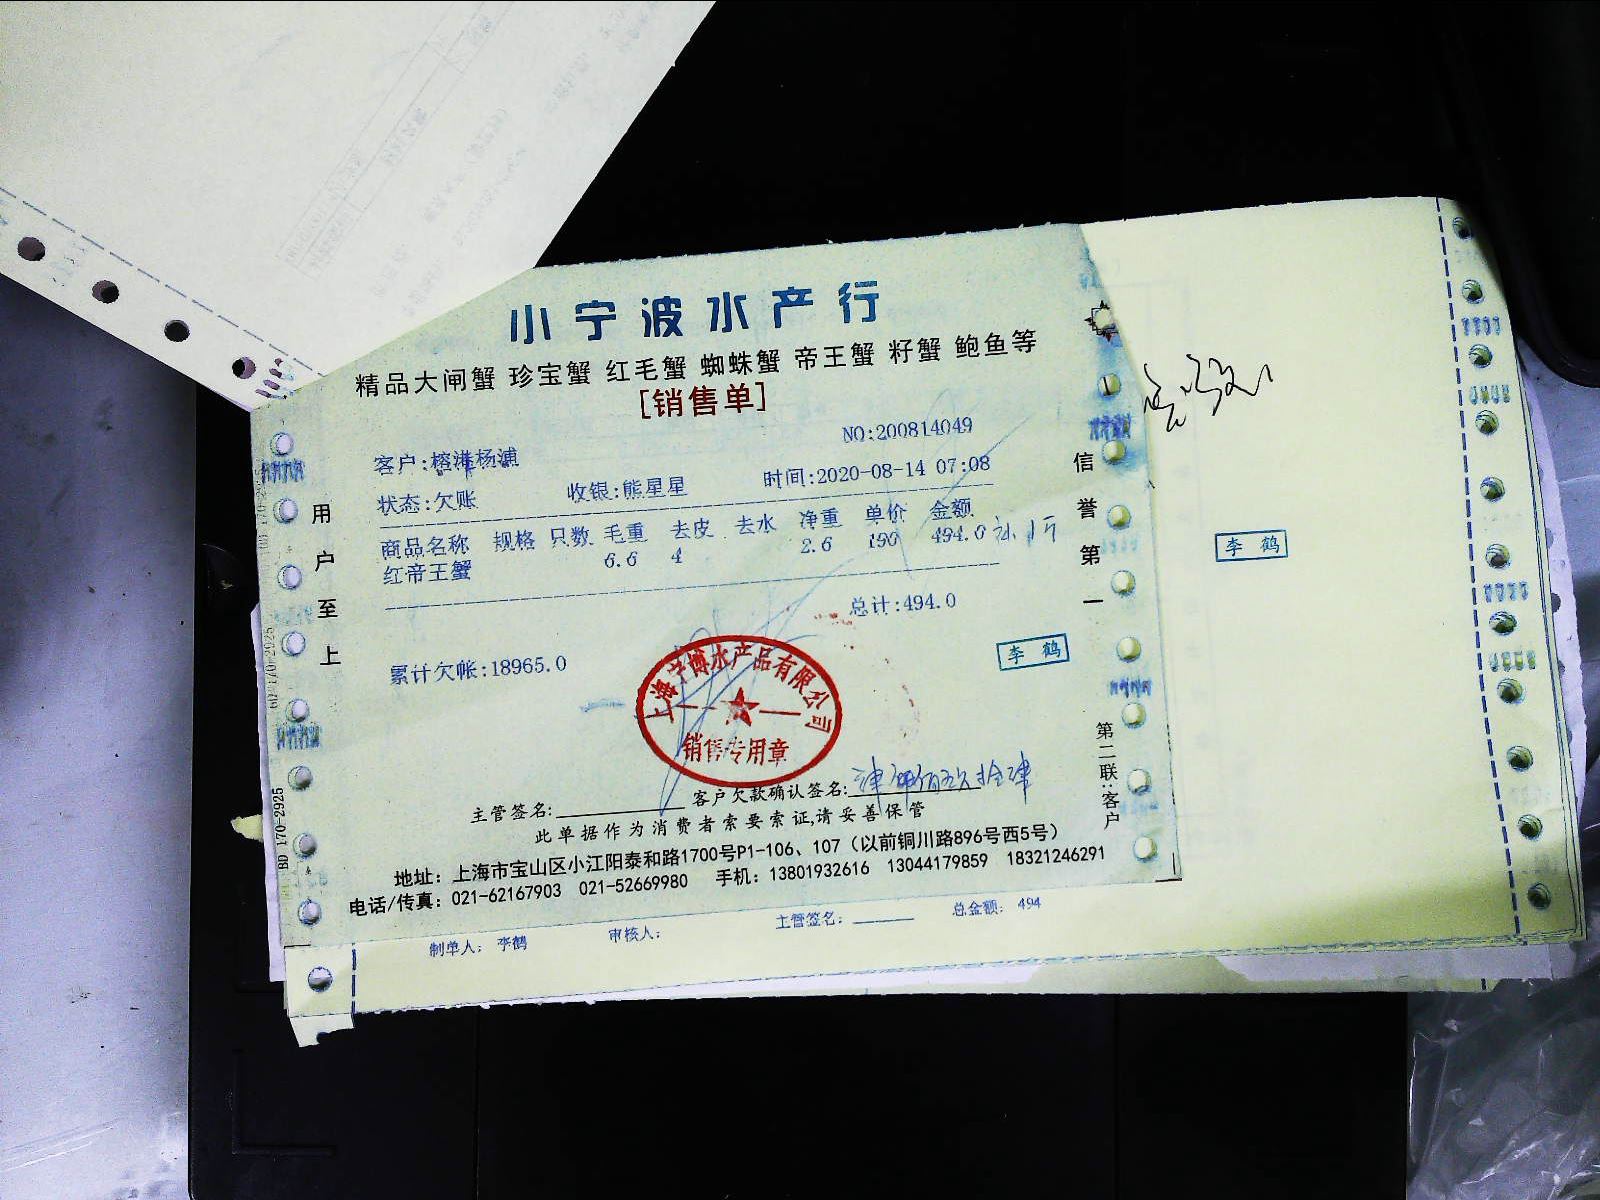 小宁波水产行
精品大闸蟹 珍宝蟹 红毛蟹 蜘蛛蟹 帝王蟹 籽蟹 鲍鱼等
[销售单]
NO:200814049
客户:榕港杨浦
状态:欠账 收银:熊星星 时间:2020-08-14 07:08
商品名称 规格 只数 毛重 去皮 去水 净重 单价 金额
红帝王蟹 6.6 4 2.6 190 494.0
总计:494.0
累计欠帐:18965.0
李鹤
上海宁博水产品有限公司
销售专用章
主管签名: 客户欠款确认签名:
此单据作为消费者索要索证,请妥善保管
地址：上海市宝山区小江阳泰和路1700号P1-106、107（以前铜川路896号西5号）
电话/传真：021-62167903 021-52669980 手机：13801932616 13044179859 18321246291
用户至上
信誉第一
第二联:客户
BD 170-2925
李鹤
制单人：李鹤 审核人： 主管签名： 总金额：494